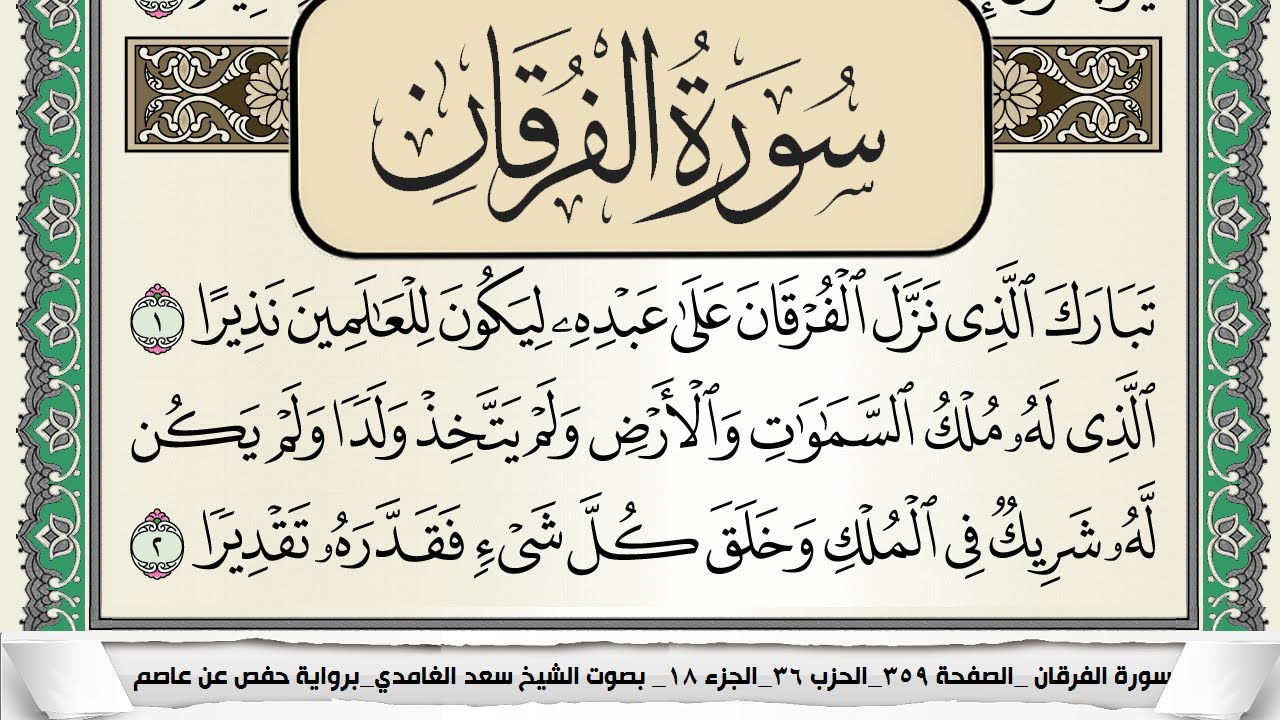 سُورَةُ الْفُرْقَانِ
تَبَارَكَ ٱلَّذِى نَزَّلَ ٱلْفُرْقَانَ عَلَىٰ عَبْدِهِۦ لِيَكُونَ لِلْعَٰلَمِينَ نَذِيرًا ١
ٱلَّذِى لَهُۥ مُلْكُ ٱلسَّمَٰوَٰتِ وَٱلْأَرْضِ وَلَمْ يَتَّخِذْ وَلَدًا وَلَمْ يَكُن
لَّهُۥ شَرِيكٌ فِى ٱلْمُلْكِ وَخَلَقَ كُلَّ شَىْءٍ فَقَدَّرَهُۥ تَقْدِيرًا ٢
سورة الفرقان _الصفحة ٣٥٩_الحزب ٣٦_الجزء ١٨_ بصوت الشيخ سعد الغامدي_برواية حفص عن عاصم